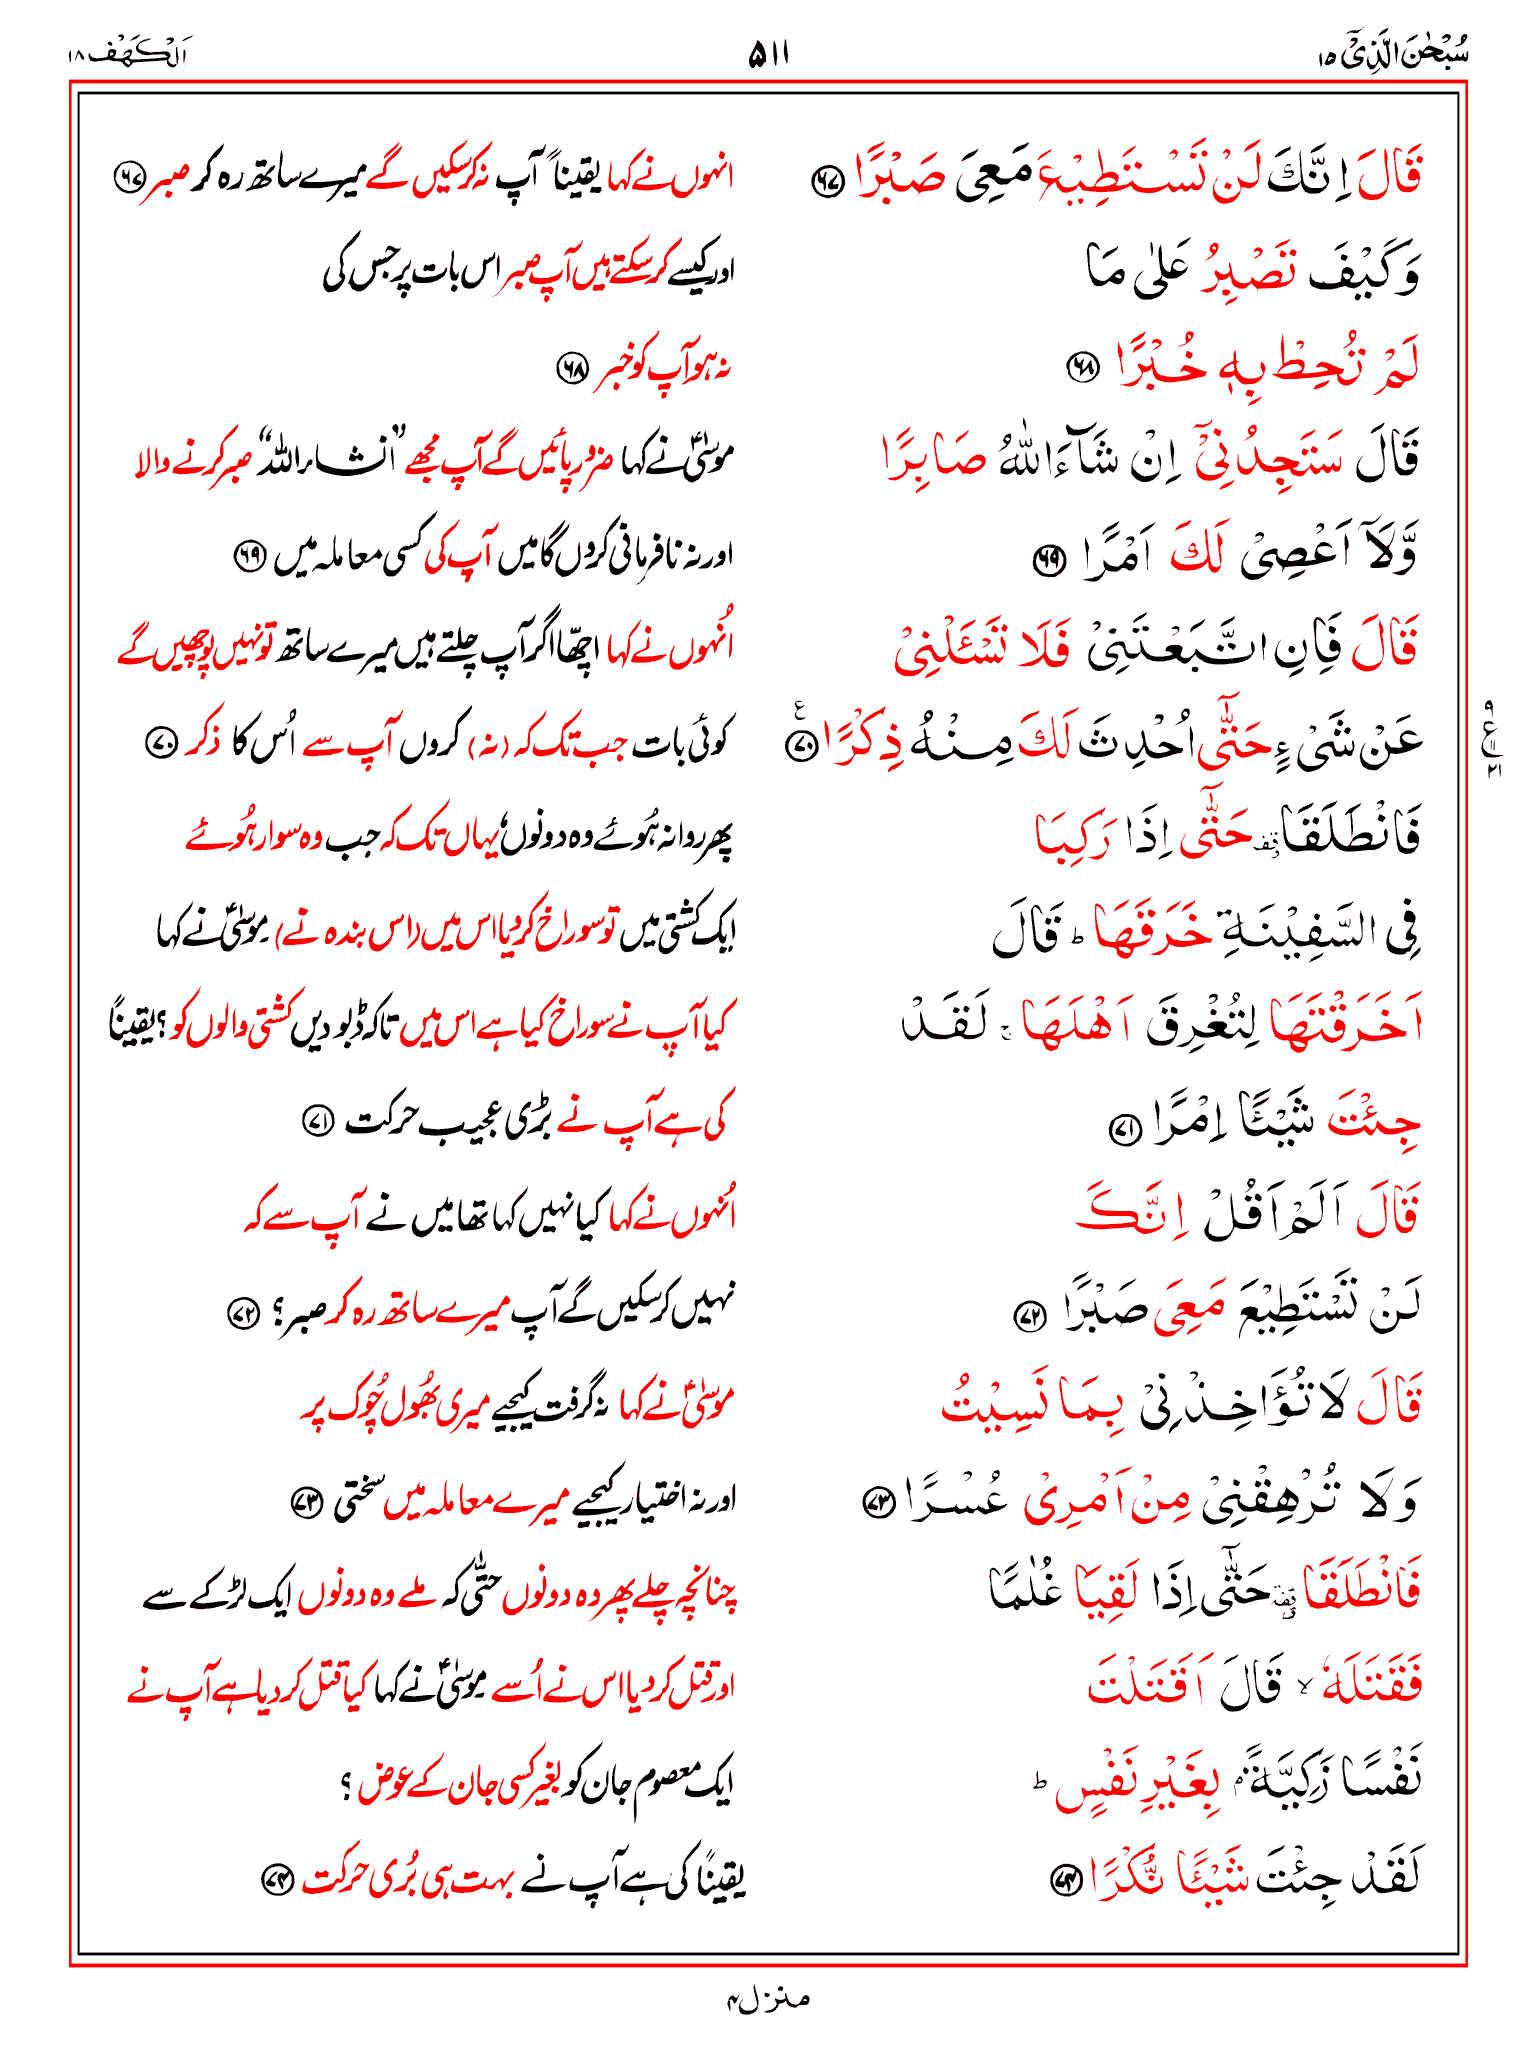 سُبْحٰنَ الَّذِیْٓ ۱۵
۵۱۱
اَلْکَهْف ۱۸
قَالَ اِنَّكَ لَنْ تَسْتَطِيْعَ مَعِىَ صَبْرًا ﴿۶۷﴾
انہوں نے کہا یقیناً آپ نہ کرسکیں گے میرے ساتھ رہ کر صبر ﴿۶۷﴾
وَكَيْفَ تَصْبِرُ عَلٰى مَا
اور کیسے کرسکتے ہیں آپ صبر اس بات پر جس کی
لَمْ تُحِطْ بِهٖ خُبْرًا ﴿۶۸﴾
نہ ہو آپ کو خبر ﴿۶۸﴾
قَالَ سَتَجِدُنِىْٓ اِنْ شَآءَ اللّٰهُ صَابِرًا
موسٰیؑ نے کہا ضرور پائیں گے آپ مجھے ”انشاء اللہ“ صبر کرنے والا
وَّلَآ اَعْصِىْ لَكَ اَمْرًا ﴿۶۹﴾
اور نہ نافرمانی کروں گا میں آپ کی کسی معاملہ میں ﴿۶۹﴾
قَالَ فَاِنِ اتَّبَعْتَنِىْ فَلَا تَسْئَلْنِىْ
اُنہوں نے کہا اچھّا اگر آپ چلتے ہیں میرے ساتھ تو نہیں پوچھیں گے
عَنْ شَىْءٍ حَتّٰٓى اُحْدِثَ لَكَ مِنْهُ ذِكْرًا ﴿۷۰﴾ ع
کوئی بات جب تک کہ (نہ) کروں آپ سے اُس کا ذکر ﴿۷۰﴾
۹ ع ۱۱ ۲۱
فَانْطَلَقَا وقفة حَتّٰٓى اِذَا رَكِبَا
پھر روانہ ہُوئے وہ دونوں، یہاں تک کہ جب وہ سوار ہُوئے
فِى السَّفِيْنَةِ خَرَقَهَا ؕ قَالَ
ایک کشتی میں تو سوراخ کردیا اس میں (اس بندہ نے) موسٰیؑ نے کہا
اَخَرَقْتَهَا لِتُغْرِقَ اَهْلَهَا ۚ لَقَدْ
کیا آپ نے سوراخ کیا ہے اس میں تاکہ ڈبو دیں کشتی والوں کو؟ یقیناً
جِئْتَ شَيْئًا اِمْرًا ﴿۷۱﴾
کی ہے آپ نے بڑی عجیب حرکت ﴿۷۱﴾
قَالَ اَلَمْ اَقُلْ اِنَّكَ
اُنہوں نے کہا کیا نہیں کہا تھا میں نے آپ سے کہ
لَنْ تَسْتَطِيْعَ مَعِىَ صَبْرًا ﴿۷۲﴾
نہیں کرسکیں گے آپ میرے ساتھ رہ کر صبر؟ ﴿۷۲﴾
قَالَ لَا تُؤَاخِذْنِىْ بِمَا نَسِيْتُ
موسٰیؑ نے کہا نہ گرفت کیجیے میری بھُول چُوک پر
وَلَا تُرْهِقْنِىْ مِنْ اَمْرِىْ عُسْرًا ﴿۷۳﴾
اور نہ اختیار کیجیے میرے معاملہ میں سختی ﴿۷۳﴾
فَانْطَلَقَا وقفة حَتّٰٓى اِذَا لَقِيَا غُلٰمًا
چنانچہ چلے پھر وہ دونوں حتّٰی کہ ملے وہ دونوں ایک لڑکے سے
فَقَتَلَهٗ ۙ قَالَ اَقَتَلْتَ
اور قتل کردیا اس نے اُسے موسٰیؑ نے کہا کیا قتل کردیا ہے آپ نے
نَفْسًا زَكِيَّةًۢ بِغَيْرِ نَفْسٍ ؕ
ایک معصوم جان کو بغیر کسی جان کے عوض؟
لَقَدْ جِئْتَ شَيْئًا نُّكْرًا ﴿۷۴﴾
یقیناً کی ہے آپ نے بہت ہی بُری حرکت ﴿۷۴﴾
منزل ۴